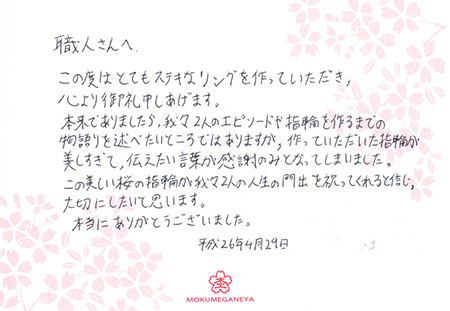 職人さんへ.
この度はとてもステキなリングを作っていただき,
心より御礼申しあげます。
本来でありましたら,我々2人のエピソードや指輪を作るまでの
物語りを述べたいところではありますが,作っていただいた指輪が
美しすぎて,伝えたい言葉が感謝のみとなってしまいました。
この美しい桜の指輪が我々2人の人生の門出を祝ってくれると信じ,
大切にしたいと思います。
本当にありがとうございました。
平成26年4月29日
MOKUMEGANEYA